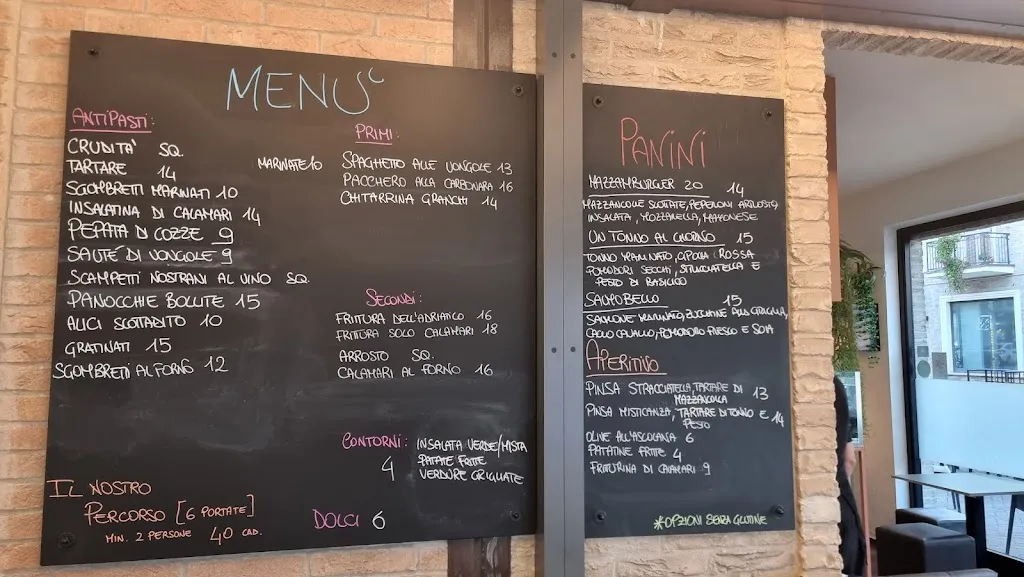 MENU
ANTIPASTI:
CRUDITA' SQ
TARTARE 14
MARINATE 10
SGOMBRETI MARINATI 10
INSALATINA DI CALAMARI 14
PEPATA DI COZZE 9
SAUTÉ DI VONGOLE 9
SCAMPETTI NOSTRANI AL VINO SQ.
PANOCCHIE BOLLITE 15
ALICI SCOTTADITO 10
GRATINATI 15
SGOMBRETI AL FORNO 12
PRIMI:
SPAGHETTO ALLE VONGOLE 13
PACCHERO ALLA CARBONARA 16
CHITARRINA GRANCHI 14
SECONDI:
FRITTURA DELL'ADRIATICO 16
FRITTURA SOLO CALAMARI 18
ARROSTO SQ.
CALAMARI AL FORNO 16
CONTORNI: INSALATA VERDE/MISTA
4 PATATE FRITTE
VERDURE GRIGLIATE
DOLCI 6
IL NOSTRO
PERCORSO [6 PORTATE]
MIN. 2 PERSONE 40 CAD.
PANINI
MAZZAMBURGER 20 14
MAZZANCOLLE SCOTTATE, PEPERONI ARROSTO,
INSALATA, MOZZARELLA, MAIONESE
UN TONNO AL GIORNO 15
TONNO MARINATO, CIPOLLA ROSSA
POMODORI SECCHI, STRACCIATELLA E
PESTO DI BASILICO
SALMO BELLO 15
SALMONE MARINATO, ZUCCHINE ALLA GRIGLIA,
CACIO CAVALLO, POMODORO FRESCO E SOIA
APERITIVO
PINSA STRACCIATELLA, TARTARE DI 13
MAZZANCOLLA
PINSA MISTICANZA, TARTARE DI TONNO E 14
PESTO
OLIVE ALL'ASCOLANA 6
PATATINE FRITTE 4
FRITTURINA DI CALAMARI 9
*OPZIONI SENZA GLUTINE